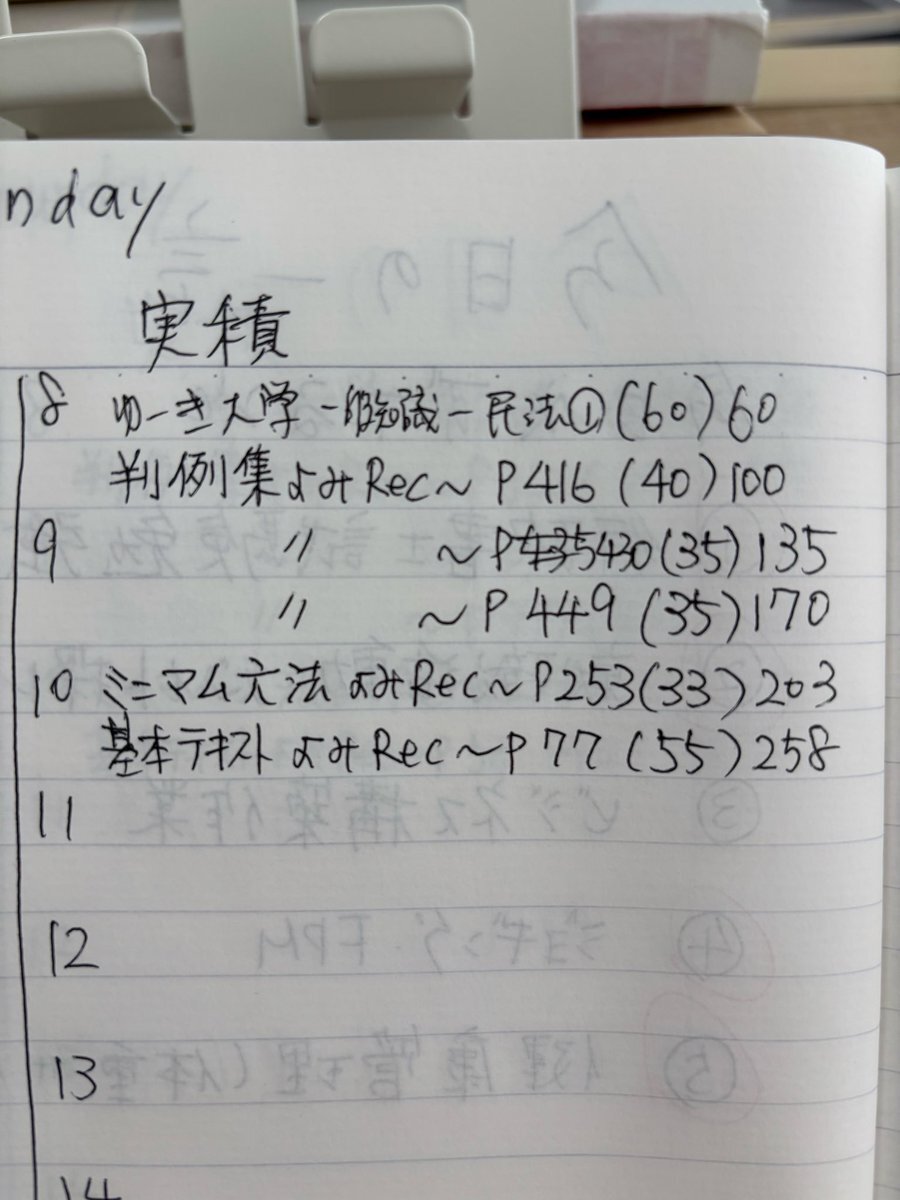 nday
実積
8 ゆーき大学 一般知識一民法①(60)60
判例集よみRec～P416(40)100
9 〃 ～P430(35)135
〃 ～P449(35)170
10 ミニマム六法よみRec～P253(33)203
基本テキストよみRec～P77(55)258
11
12
13
14